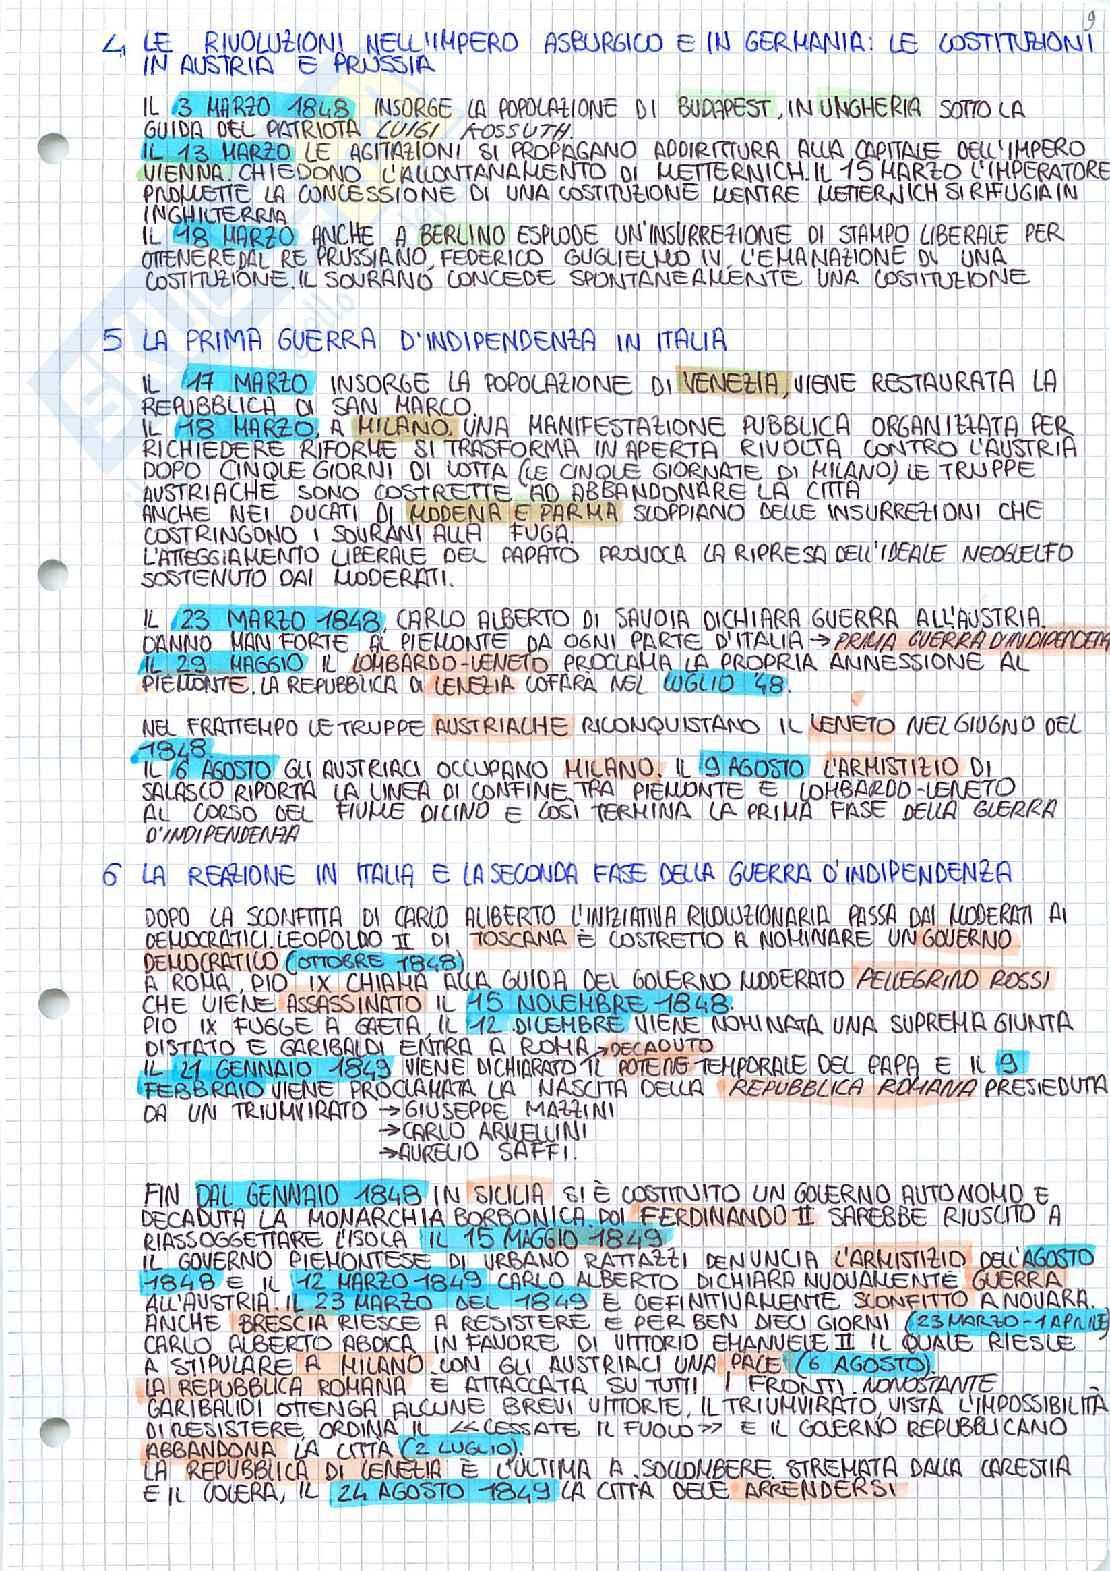 9
4, LE RIVOLUZIONI NELL'IMPERO ASBURGICO E IN GERMANIA: LE COSTITUZIONI
IN AUSTRIA E PRUSSIA
IL 3 MARZO 1848 INSORGE LA POPOLAZIONE DI BUDAPEST, IN UNGHERIA SOTTO LA
GUIDA DEL PATRIOTA LUIGI KOSSUTH.
IL 13 MARZO LE AGITAZIONI SI PROPAGANO ADDIRITTURA ALLA CAPITALE DELL'IMPERO
VIENNA. CHIEDONO L'ALLONTANAMENTO DI METTERNICH. IL 15 MARZO L'IMPERATORE
PROMETTE LA CONCESSIONE DI UNA COSTITUZIONE MENTRE METTERNICH SI RIFUGIA IN
INGHILTERRIA
IL 18 MARZO ANCHE A BERLINO ESPLODE UN'INSURREZIONE DI STAMPO LIBERALE PER
OTTENERE DAL RE PRUSSIANO, FEDERICO GUGLIELMO IV, L'EMANAZIONE DI UNA
COSTITUZIONE. IL SOVRANO CONCEDE SPONTANEAMENTE UNA COSTITUZIONE
5 LA PRIMA GUERRA D'INDIPENDENZA IN ITALIA
IL 17 MARZO INSORGE LA POPOLAZIONE DI VENEZIA, VIENE RESTAURATA LA
REPUBBLICA DI SAN MARCO.
IL 18 MARZO, A MILANO, UNA MANIFESTAZIONE PUBBLICA ORGANIZZATA PER
RICHIEDERE RIFORME SI TRASFORMA IN APERTA RIVOLTA CONTRO L'AUSTRIA
DOPO CINQUE GIORNI DI LOTTA (LE CINQUE GIORNATE DI MILANO) LE TRUPPE
AUSTRIACHE SONO COSTRETTE AD ABBANDONARE LA CITTÀ
ANCHE NEI DUCATI DI MODENA E PARMA SCOPPIANO DELLE INSURREZIONI CHE
COSTRINGONO I SOVRANI ALLA FUGA.
L'ATTEGGIAMENTO LIBERALE DEL PAPATO PROVOCA LA RIPRESA DELL'IDEALE NEOGUELFO
SOSTENUTO DAI MODERATI.
IL 23 MARZO 1848, CARLO ALBERTO DI SAVOIA DICHIARA GUERRA ALL'AUSTRIA.
DANNO MAN FORTE AL PIEMONTE DA OGNI PARTE D'ITALIA → PRIMA GUERRA D'INDIPENDENZA
IL 29 MAGGIO IL LOMBARDO-VENETO PROCLAMA LA PROPRIA ANNESSIONE AL
PIEMONTE. LA REPUBBLICA DI VENEZIA LO FARÀ NEL LUGLIO '48.
NEL FRATTEMPO LE TRUPPE AUSTRIACHE RICONQUISTANO IL VENETO NEL GIUGNO DEL
1848.
IL 6 AGOSTO GLI AUSTRIACI OCCUPANO MILANO. IL 9 AGOSTO L'ARMISTIZIO DI
SALASCO RIPORTA LA LINEA DI CONFINE TRA PIEMONTE E LOMBARDO-VENETO
AL CORSO DEL FIUME DICINO E COSÌ TERMINA LA PRIMA FASE DELLA GUERRA
D'INDIPENDENZA
6 LA REAZIONE IN ITALIA E LA SECONDA FASE DELLA GUERRA D'INDIPENDENZA
DOPO LA SCONFITTA DI CARLO ALIBERTO L'INIZIATIVA RIVOLUZIONARIA PASSA DAI MODERATI AI
DEMOCRATICI. LEOPOLDO II DI TOSCANA È COSTRETTO A NOMINARE UN GOVERNO
DEMOCRATICO (OTTOBRE 1848)
A ROMA, PIO IX CHIAMA ALLA GUIDA DEL GOVERNO MODERATO PELLEGRINO ROSSI
CHE VIENE ASSASSINATO IL 15 NOVEMBRE 1848.
PIO IX FUGGE A GAETA, IL 12 DICEMBRE VIENE NOMINATA UNA SUPREMA GIUNTA
DI STATO E GARIBALDI ENTRA A ROMA → DECADUTO
IL 21 GENNAIO 1849 VIENE DICHIARATO IL POTERE TEMPORALE DEL PAPA E IL 9
FEBBRAIO VIENE PROCLAMATA LA NASCITA DELLA REPUBBLICA ROMANA PRESIEDUTA
DA UN TRIUMVIRATO → GIUSEPPE MAZZINI
→ CARLO ARMELLINI
→ AURELIO SAFFI.
FIN DAL GENNAIO 1848 IN SICILIA SI È COSTITUITO UN GOVERNO AUTONOMO E
DECADUTA LA MONARCHIA BORBONICA. POI FERDINANDO II SAREBBE RIUSCITO A
RIASSOGGETTARE L'ISOLA IL 15 MAGGIO 1849
IL GOVERNO PIEMONTESE DI URBANO RATTAZZI DENUNCIA L'ARMISTIZIO DELL'AGOSTO
1848 E IL 12 MARZO 1849 CARLO ALBERTO DICHIARA NUOVAMENTE GUERRA
ALL'AUSTRIA. IL 23 MARZO DEL 1849 È DEFINITIVAMENTE SCONFITTO A NOVARA.
ANCHE BRESCIA RIESCE A RESISTERE E PER BEN DIECI GIORNI (23 MARZO - 1 APRILE)
CARLO ALBERTO ABDICA IN FAVORE DI VITTORIO EMANUELE II IL QUALE RIESCE
A STIPULARE A MILANO CON GLI AUSTRIACI UNA PACE (6 AGOSTO).
LA REPUBBLICA ROMANA È ATTACCATA SU TUTTI I FRONTI. NONOSTANTE
GARIBALDI OTTENGA ALCUNE BREVI VITTORIE, IL TRIUMVIRATO, VISTA L'IMPOSSIBILITÀ
DI RESISTERE, ORDINA IL << CESSATE IL FUOCO >> E IL GOVERNO REPUBBLICANO
ABBANDONA LA CITTÀ (2 LUGLIO).
LA REPUBBLICA DI VENEZIA È L'ULTIMA A SOCCOMBERE. STREMATA DALLA CARESTIA
E IL COLERA, IL 24 AGOSTO 1849 LA CITTÀ DEVE ARRENDERSI